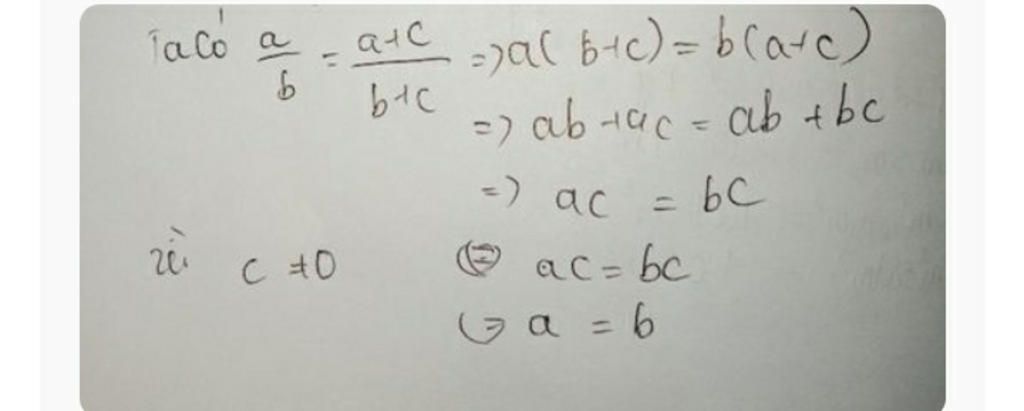 Ta có a/b = a+c/b+c => a(b+c) = b(a+c)
=> ab+ac = ab+bc
=> ac = bc
Vì c ≠ 0 <=> ac = bc
<=> a = b